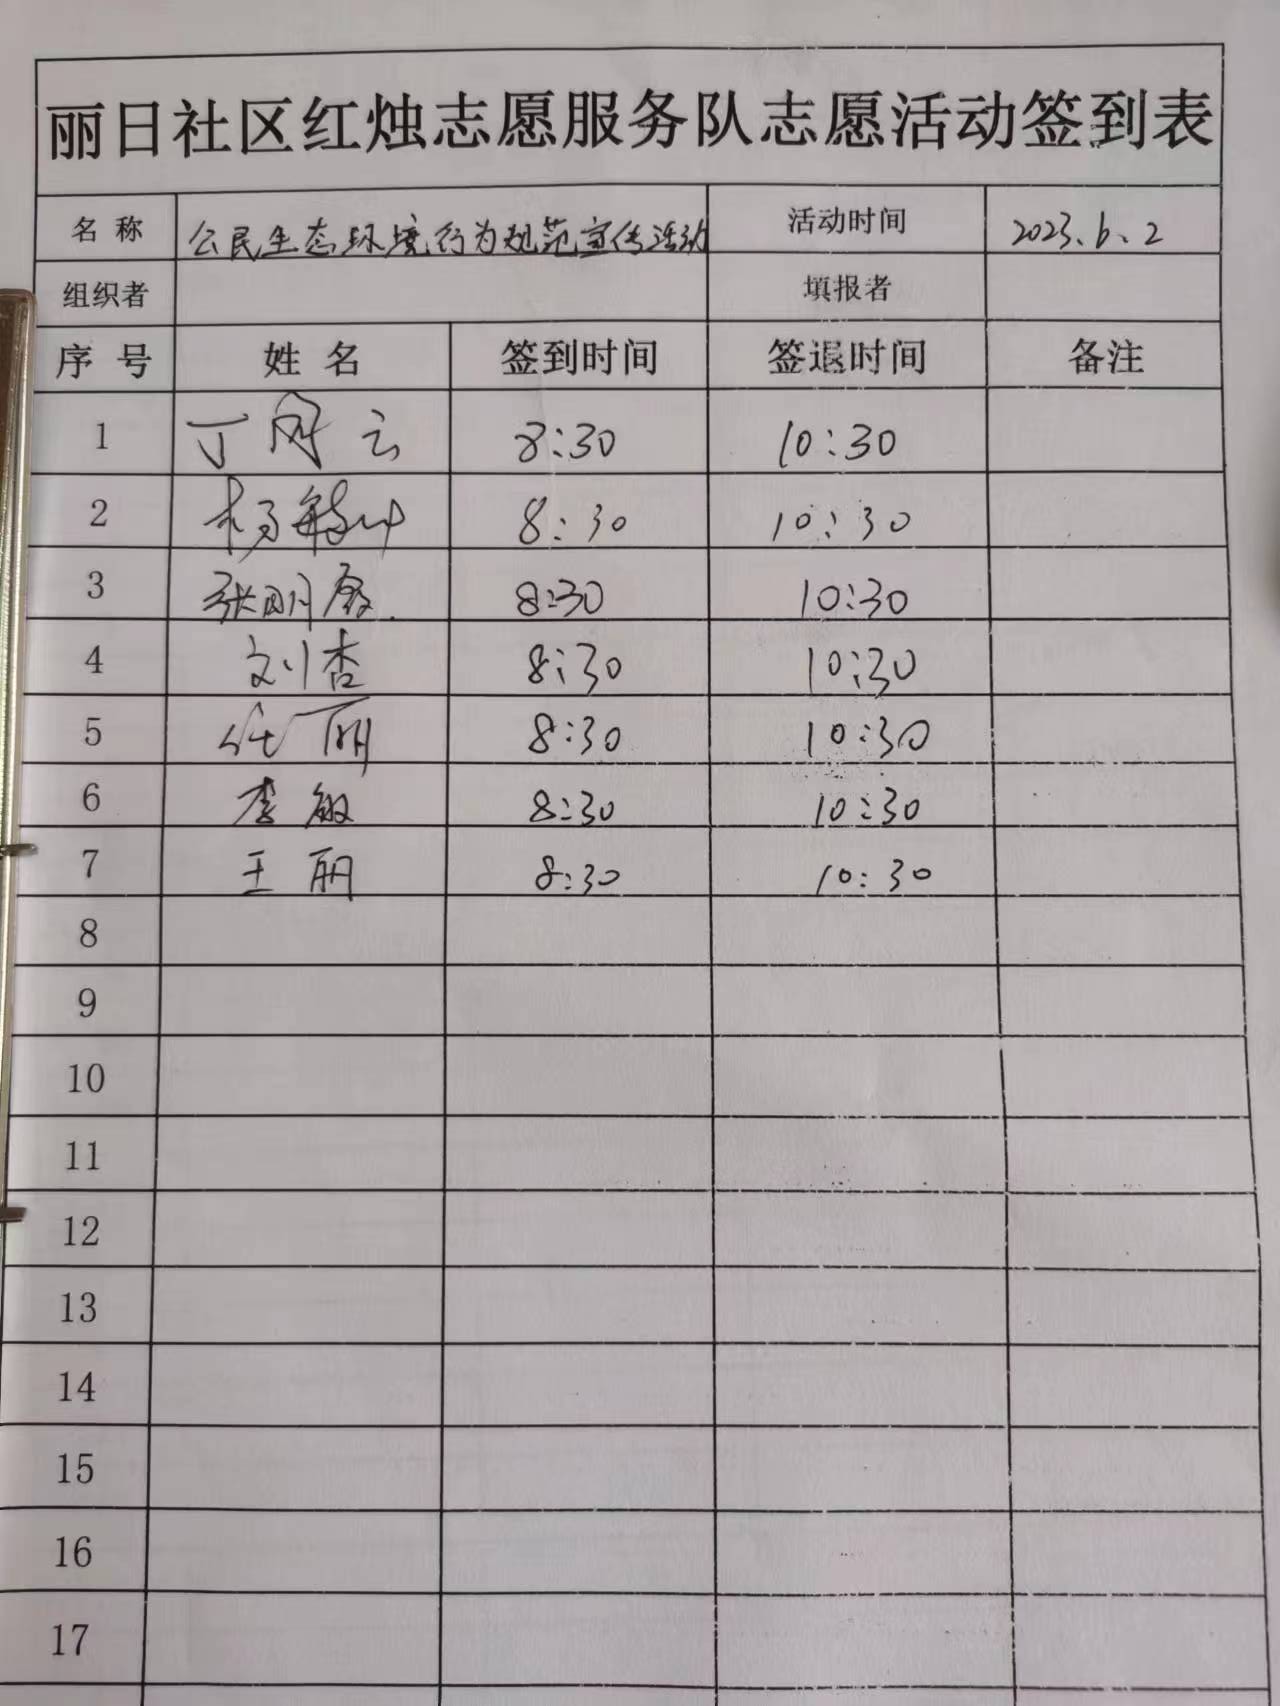 丽日社区红烛志愿服务队志愿活动签到表
名 称 公民生态环境行为规范宣传活动 活动时间 2023.6.2
组织者 填报者
序 号 姓 名 签到时间 签退时间 备注
1 丁 云 8:30 10:30
2 杨敏 8:30 10:30
3 张明 8:30 10:30
4 刘杏 8:30 10:30
5 任丽 8:30 10:30
6 李敏 8:30 10:30
7 王丽 8:30 10:30
8
9
10
11
12
13
14
15
16
17